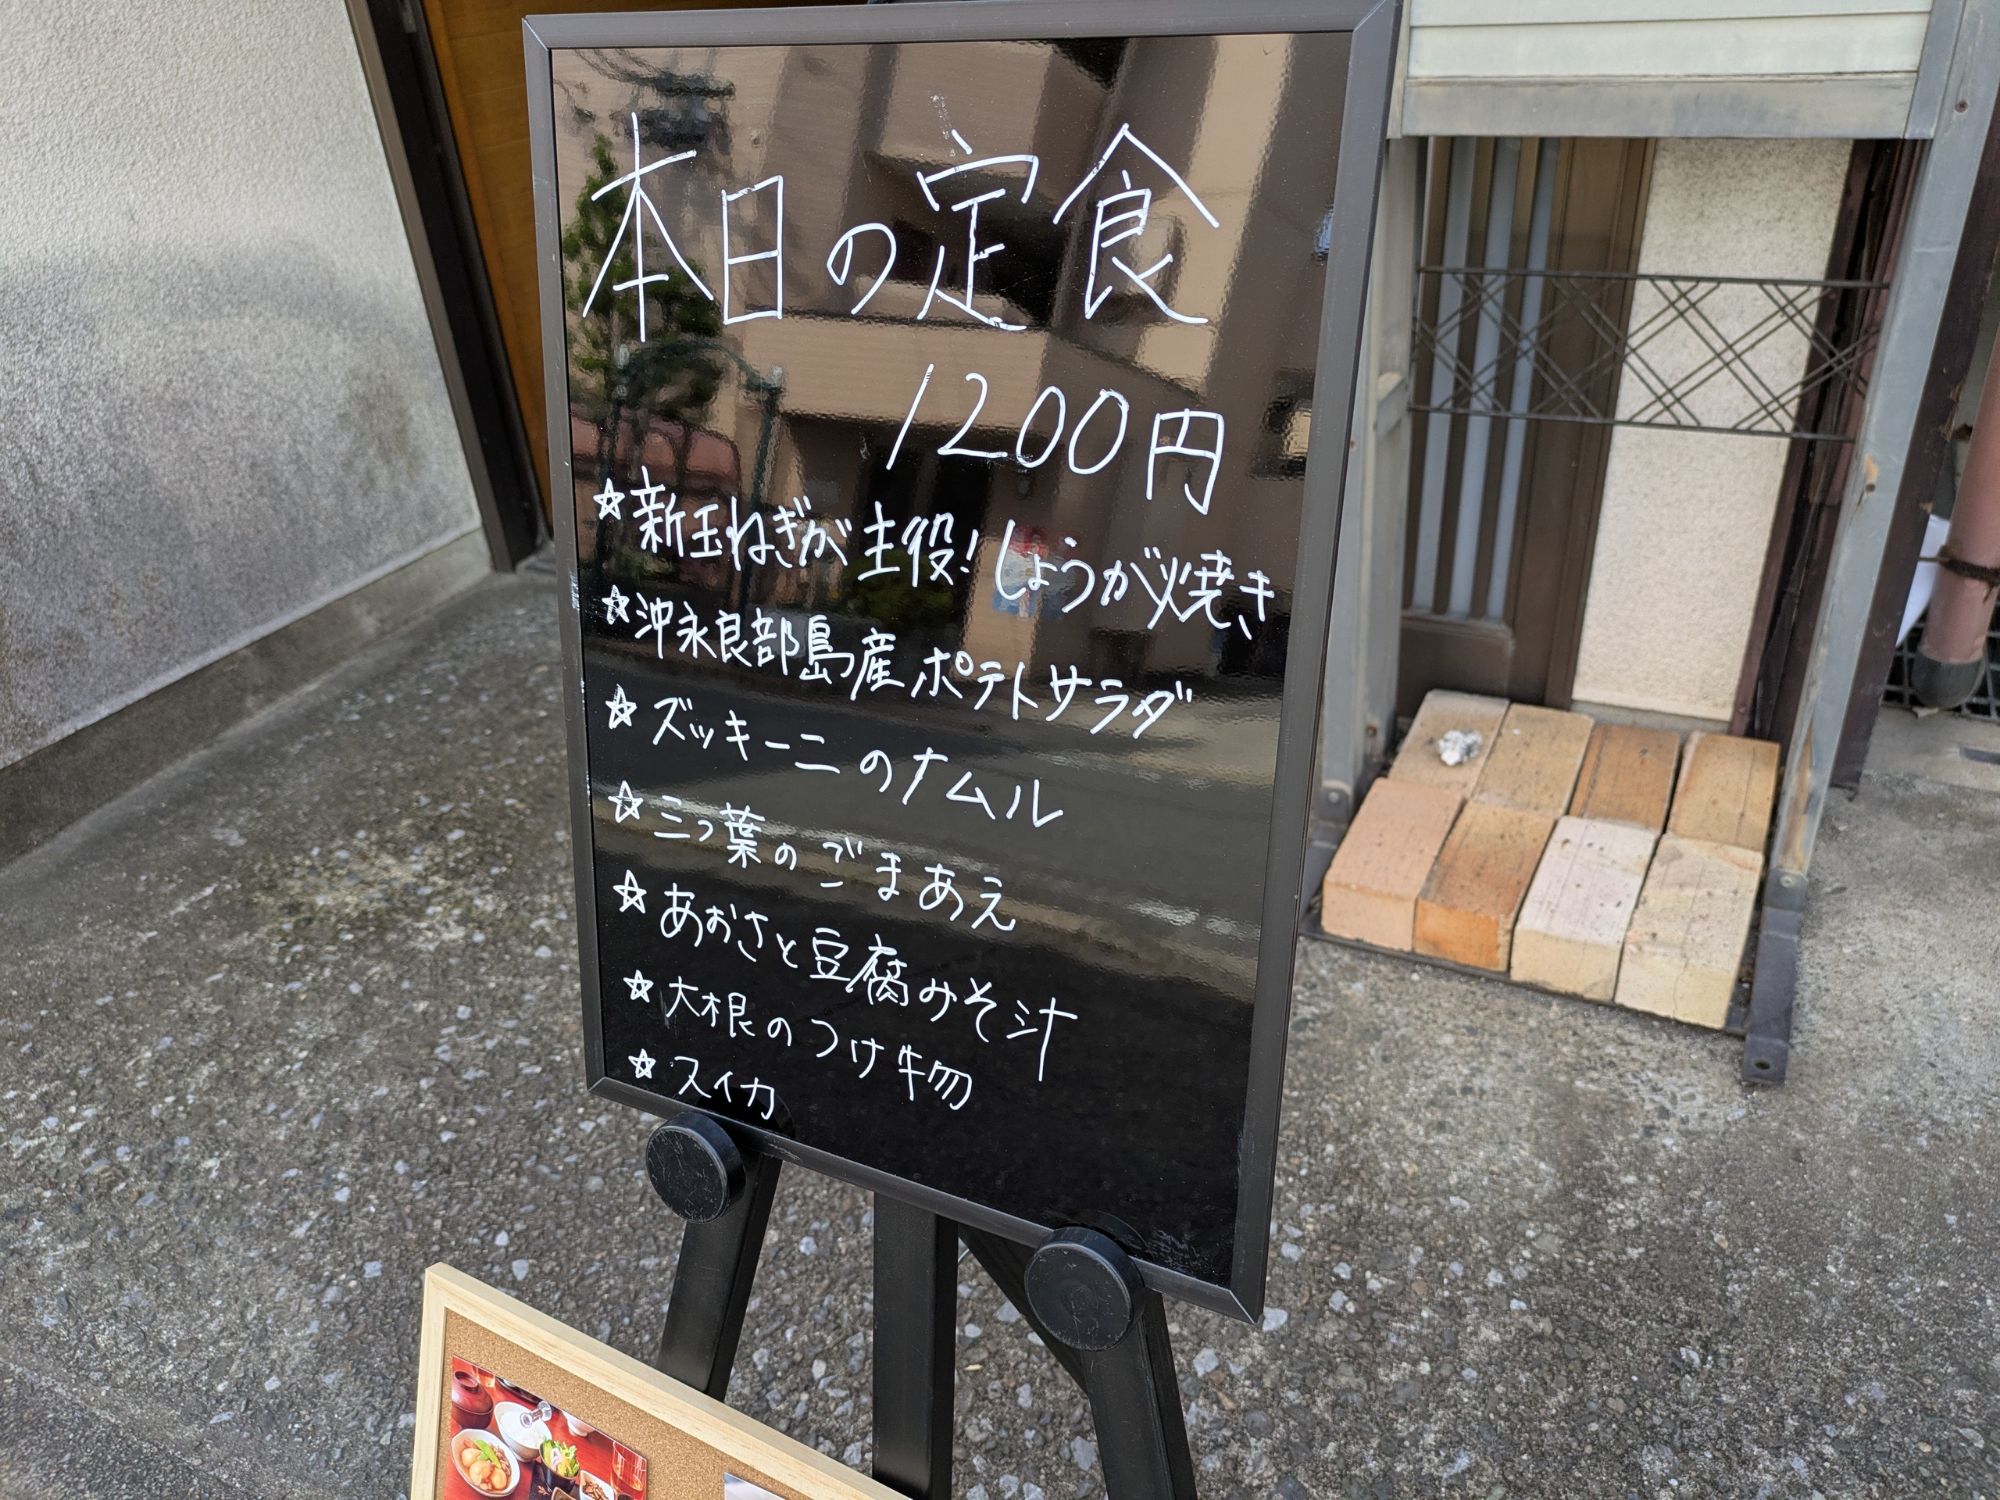 本日の定食
1200円
☆新玉ねぎが主役!しょうが焼き
☆沖永良部島産ポテトサラダ
☆ズッキーニのナムル
☆三つ葉のごまあえ
☆あおさと豆腐みそ汁
☆大根のつけ物
☆スイカ